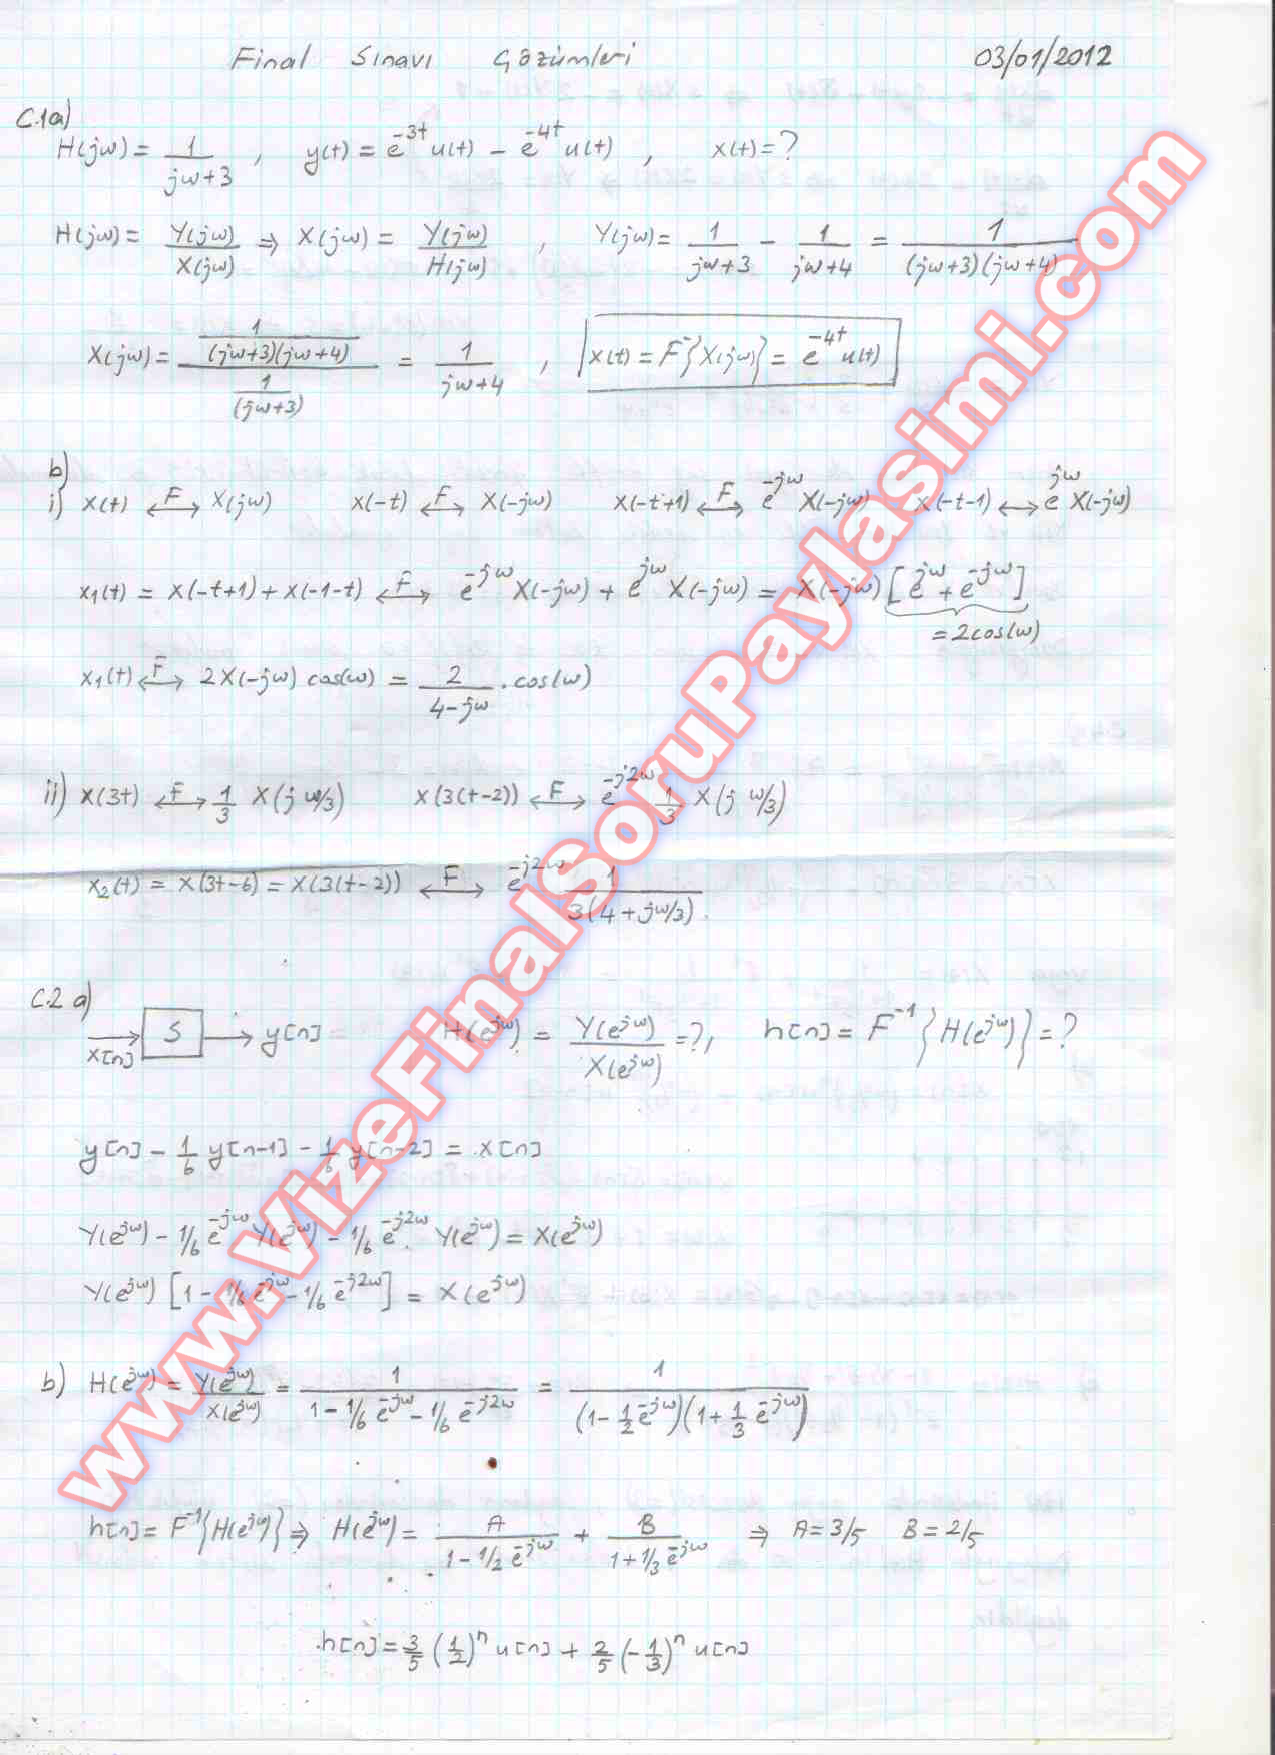 Final Sınavı Çözümleri 03/01/2012
C.1a)
H(jω) = 1/(jω+3) , y(t) = e^{-3t} u(t) - e^{-4t} u(t) , x(t) = ?
H(jω) = Y(jω)/X(jω) ⇒ X(jω) = Y(jω)/H(jω) , Y(jω) = 1/(jω+3) - 1/(jω+4) = 1/((jω+3)(jω+4))
X(jω) = (1/((jω+3)(jω+4)))/(1/(jω+3)) = 1/(jω+4) , x(t) = F^{-1}{X(jω)} = e^{-4t} u(t)
b)
i) x(t) ⟷F X(jω) x(-t) ⟷F X(-jω) x(-t+1) ⟷F e^{-jω} X(-jω) x(-t-1) ⟷ e^{jω} X(-jω)
x₁(t) = x(-t+1) + x(-1-t) ⟷F e^{-jω} X(-jω) + e^{jω} X(-jω) = X(-jω) [e^{jω} + e^{-jω}]
= 2cos(ω)
x₁(t) ⟷F 2X(-jω) cos(ω) = 2/(4-jω) . cos(ω)
ii) x(3t) ⟷F 1/3 X(j ω/3) x(3(t-2)) ⟷F e^{-j2ω} 1/3 X(j ω/3)
x₂(t) = x(3t-6) = x(3(t-2)) ⟷F e^{-j2ω} 1/(3(4+jω/3))
C.2 a)
x[n] → S → y[n] H(e^{jω}) = Y(e^{jω})/X(e^{jω}) = ?, h[n] = F^{-1}{H(e^{jω})} = ?
y[n] - 1/6 y[n-1] - 1/6 y[n-2] = x[n]
Y(e^{jω}) - 1/6 e^{-jω} Y(e^{jω}) - 1/6 e^{-j2ω} Y(e^{jω}) = X(e^{jω})
Y(e^{jω}) [1 - 1/6 e^{-jω} - 1/6 e^{-j2ω}] = X(e^{jω})
b) H(e^{jω}) = Y(e^{jω})/X(e^{jω}) = 1/(1 - 1/6 e^{-jω} - 1/6 e^{-j2ω}) = 1/((1 - 1/2 e^{-jω})(1 + 1/3 e^{-jω}))
h[n] = F^{-1}{H(e^{jω})} ⇒ H(e^{jω}) = A/(1 - 1/2 e^{-jω}) + B/(1 + 1/3 e^{-jω}) ⇒ A = 3/5 B = 2/5
h[n] = 3/5 (1/2)^n u[n] + 2/5 (-1/3)^n u[n]
www.VizeFinalSoruPaylasimi.com